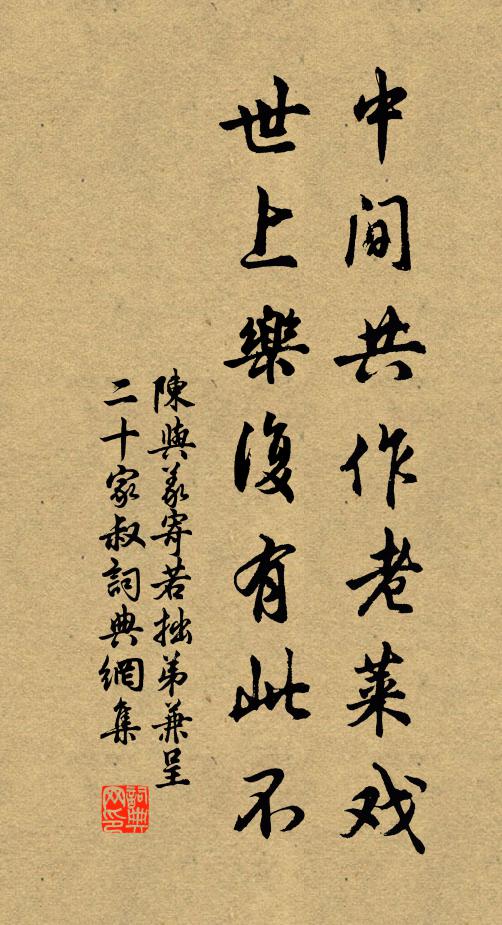 中间共作老莱戏
世上樂復有此不
陳與義寄若拙弟兼呈
二十家叔詞典網集
詞典网印